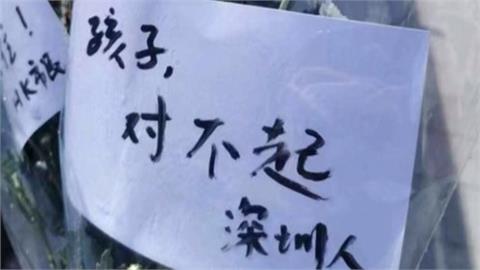 孩子,
对不起
深圳人